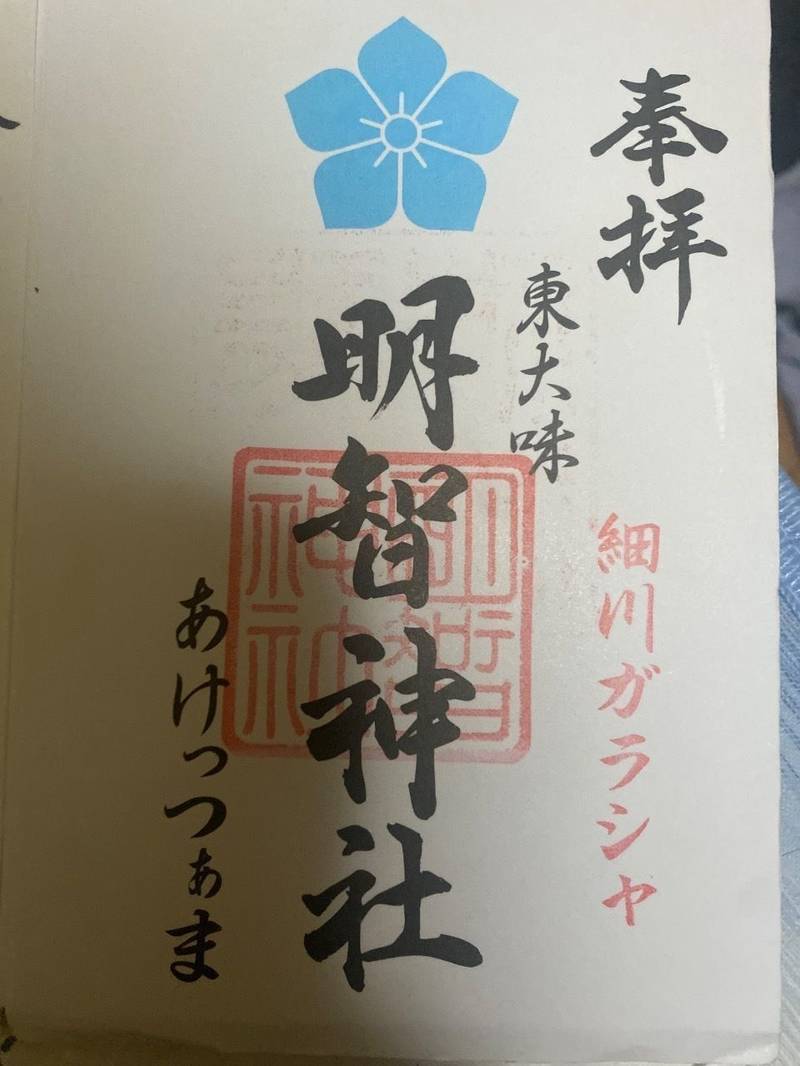 奉拝
細川ガラシャ
東大味
明智神社
明智神社
あけっつぁま